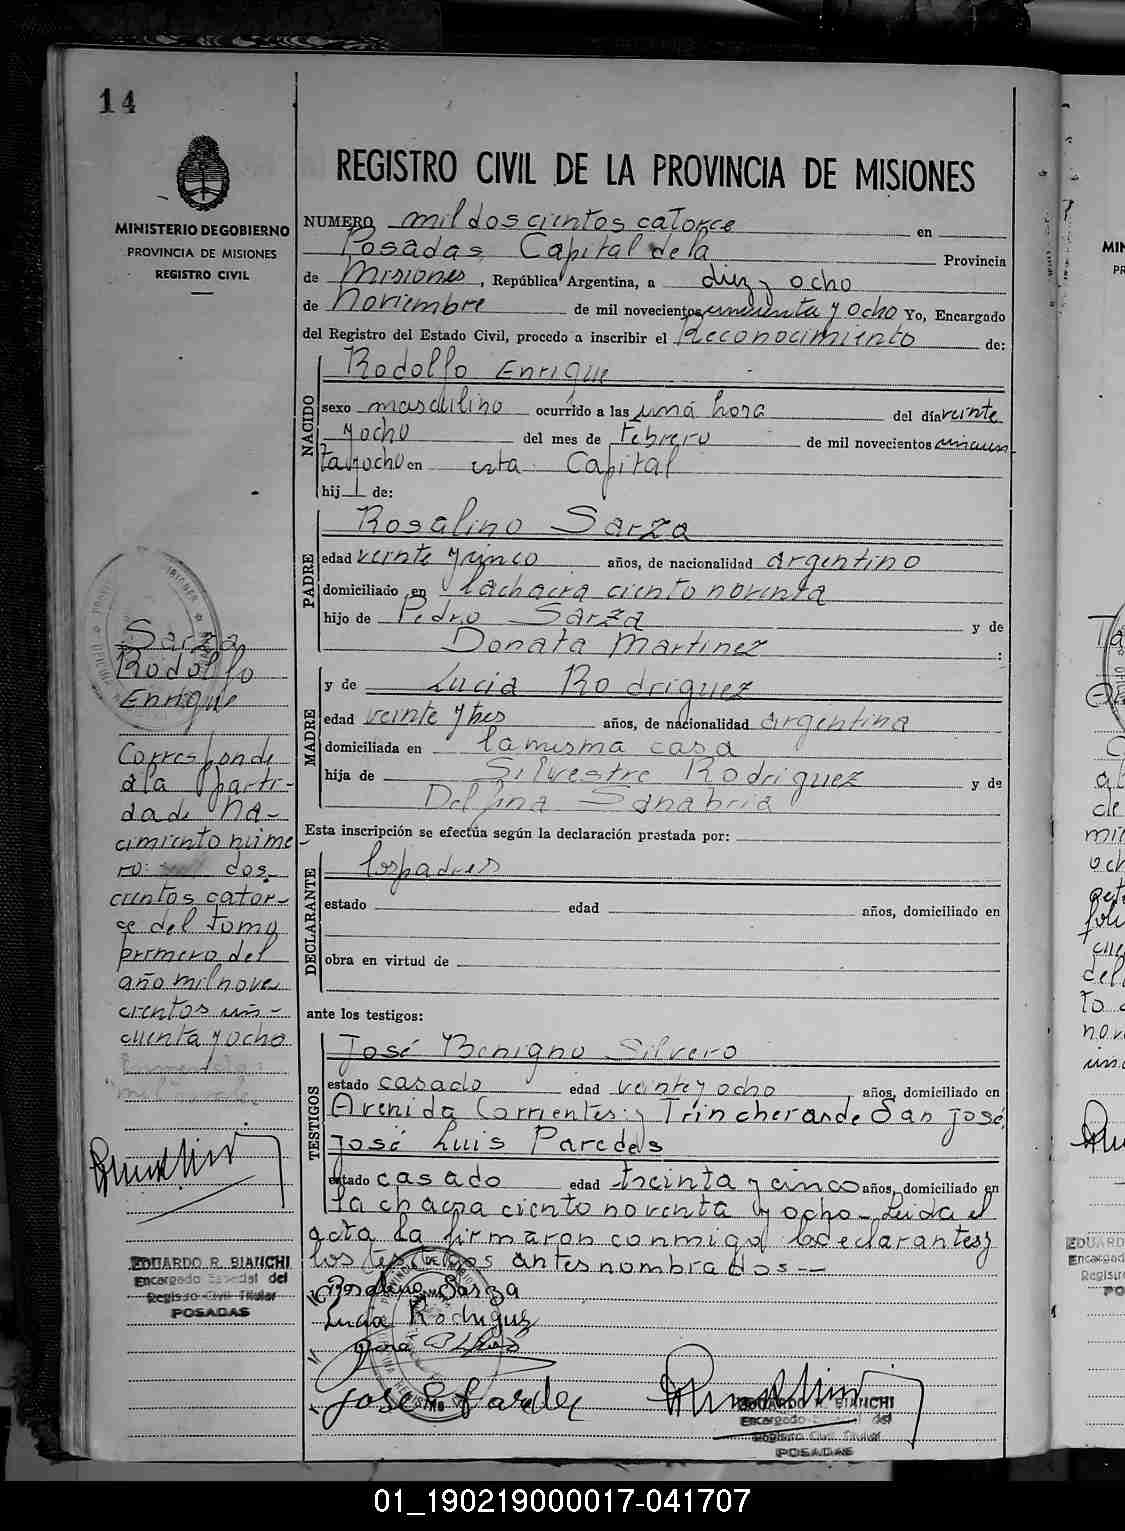 14
MINISTERIO DE GOBIERNO
PROVINCIA DE MISIONES
REGISTRO CIVIL
REGISTRO CIVIL DE LA PROVINCIA DE MISIONES
NUMERO mil doscientos catorce en
Posadas, Capital de la Provincia
de Misiones, República Argentina, a diez y ocho
de Noviembre de mil novecientos cincuenta y ocho Yo, Encargado
del Registro del Estado Civil, procedo a inscribir el Reconocimiento de:
NACIDO
Rodolfo Enrique
sexo masculino ocurrido a las una hora del día veinte
y ocho del mes de Febrero de mil novecientos cincuen
ta y ocho en esta Capital
hij de:
PADRE
Rosalino Sarza
edad veinte y cinco años, de nacionalidad argentino
domiciliado en la chacra ciento noventa
hijo de Pedro Sarza y de
Donata Martinez :
MADRE
y de Lucia Rodriguez
edad veinte y tres años, de nacionalidad argentina
domiciliada en la misma casa
hija de Silvestre Rodriguez y de
Delfina Sanabria
Esta inscripción se efectúa según la declaración prestada por:
DECLARANTE
los padres
estado edad años, domiciliado en
obra en virtud de
ante los testigos:
TESTIGOS
José Benigno Silvero
estado casado edad veinte y ocho años, domiciliado en
Avenida Corrientes y Trincheras de San José,
José Luis Paredes
estado casado edad treinta y cinco años, domiciliado en
la chacra ciento noventa y ocho - Leida el
acta la firmaron conmigo los declarantes y
los testigos antes nombrados -
Rosalino Sarza
Lucia Rodriguez
José Paredes
EDUARDO R. BIANCHI
Encargado Especial del
Registro Civil Titular
POSADAS
Sarza
Rodolfo
Enrique
Corresponde
a la parti-
da de na-
cimiento núme
ro: dos-
cientos cator-
ce del tomo
primero del
año mil nove
cientos cin-
cuenta y ocho
EDUARDO R. BIANCHI
Encargado Especial del
Registro Civil Titular
POSADAS
01_190219000017-041707